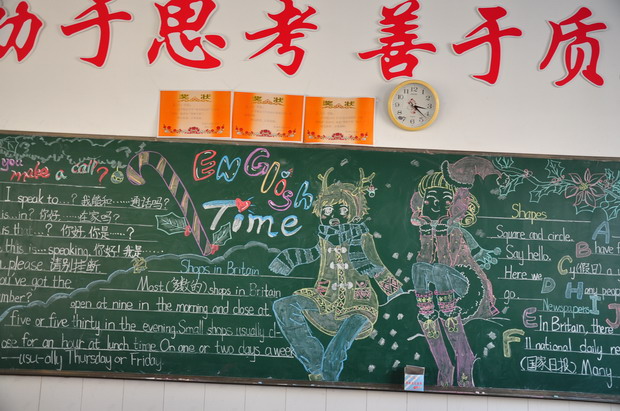 动于思考 善于质
奖状 奖状 奖状
you make a call?
I speak to...? 我能和……通话吗?
is...in? 你好,……在家吗?
is that...? 你好,你是……?
this is...speaking. 你好!我是……
please. 请别挂断
've got the
number?
ENGlish
Time
Shops in Britain
Most (多数的) shops in Britain
open at nine in the morning and close at
Five or five thirty in the evening. Small shops usually cl
ose for an hour at lunch time. On one or two days a week
——usually Thursday or Friday.
Shapes
Square and circle.
Say hello.
Here we
go
A B C D E F H I J
have f
(假日) a
any people
Newspapers
In Britain, there
11 national daily ne
(国家日报) Many